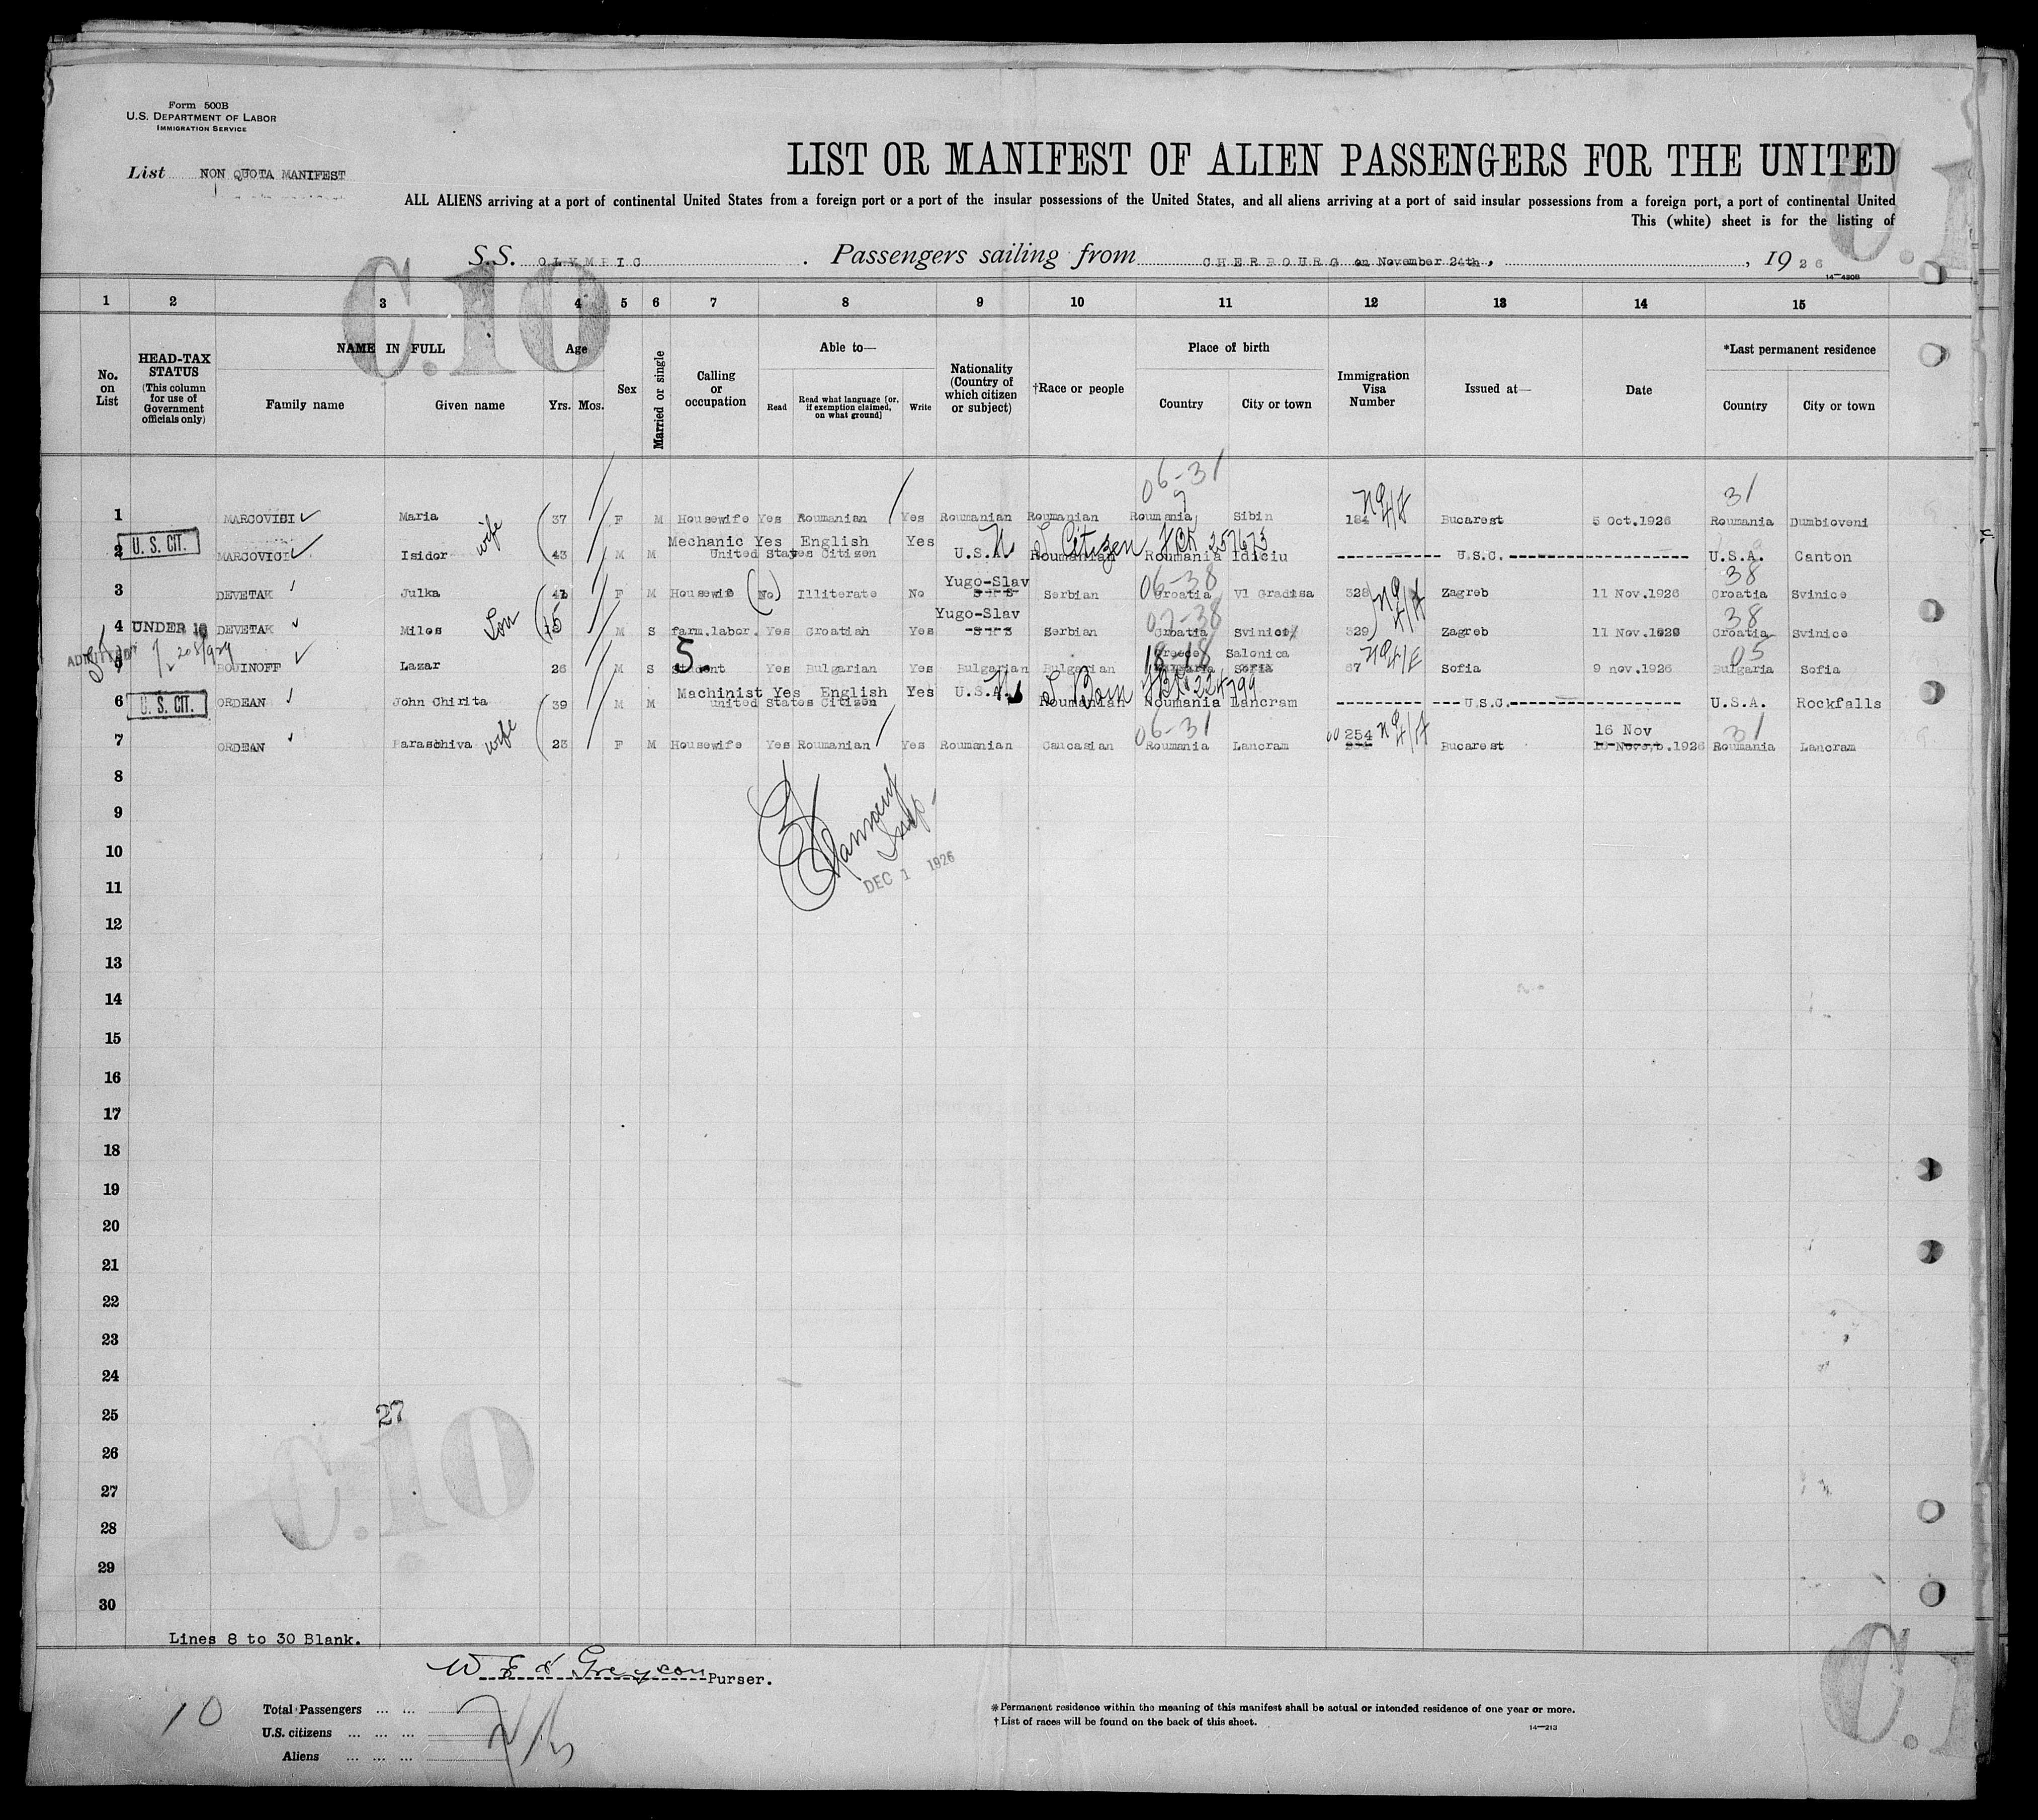 Form 500B
U.S. DEPARTMENT OF LABOR
IMMIGRATION SERVICE
List NON QUOTA MANIFEST
LIST OR MANIFEST OF ALIEN PASSENGERS FOR THE UNITED
ALL ALIENS arriving at a port of continental United States from a foreign port or a port of the insular possessions of the United States, and all aliens arriving at a port of said insular possessions from a foreign port, a port of continental United
This (white) sheet is for the listing of
S.S. OLYMPIC . Passengers sailing from CHERBOURG on November 24th, , 1926
14—430B
C.10
C.1
1 2 3 4 5 6 7 8 9 10 11 12 13 14 15
No. on List
HEAD-TAX STATUS (This column for use of Government officials only)
NAME IN FULL
Family name Given name
Age
Yrs. Mos.
Sex
Married or single
Calling or occupation
Able to—
Read Read what language [or, if exemption claimed, on what ground] Write
Nationality (Country of which citizen or subject)
†Race or people
Place of birth
Country City or town
Immigration Visa Number
Issued at—
Date
*Last permanent residence
Country City or town
06-31 31
1 MARCOVICI Maria 37 F M Housewife Yes Roumanian Yes Roumanian Roumanian Roumania Sibin 184 Bucarest 5 Oct.1926 Roumania Dumbioveni
Mechanic Yes English Yes
2 U. S. CIT. MARCOVICI Isidor wife 43 M M United States Citizen U.S.A. Roumanian Citizen 257673 Roumania Idiciu U.S.C. U.S.A. Canton
Yugo-Slav 06-38 38
3 DEVETAK Julka F M Housewife (No) Illiterate No S H S Serbian Croatia Vl Gradisa 328 Zagreb 11 Nov.1926 Croatia Svinice
Yugo-Slav 38
4 UNDER 16 DEVETAK Milos Son 15 M S farm.labor. Yes Croatian Yes S H S Serbian Croatia Svinice 329 Zagreb 11 Nov.1926 Croatia Svinice
ADMITTED Greece Salonica 05
5 BOUINOFF Lazar 26 M S student 5. Yes Bulgarian Yes Bulgarian Bulgarian Bulgaria Sofia 67 Sofia 9 nov.1926 Bulgaria Sofia
Machinist Yes English Yes U.S.A.
6 U. S. CIT. ORDEAN John Chirita 39 M M United States Citizen Roumanian Born Roumania Lancram U.S.C. U.S.A. Rockfalls
06-31 254 16 Nov 31
7 ORDEAN Paraschiva wife 23 F M Housewife Yes Roumanian Yes Roumanian Caucasian Roumania Lancram Bucarest 1926 Roumania Lancram
8
9
Insp-
10
DEC 1 1926
11
12
13
14
15
16
17
18
19
20
21
22
23
24
25
27
26
C.10
27
28
29
30
Lines 8 to 30 Blank.
Purser.
10
Total Passengers ... ...
U.S. citizens ... ... ...
Aliens ... ... ...
* Permanent residence within the meaning of this manifest shall be actual or intended residence of one year or more.
† List of races will be found on the back of this sheet.
14—213
C.1